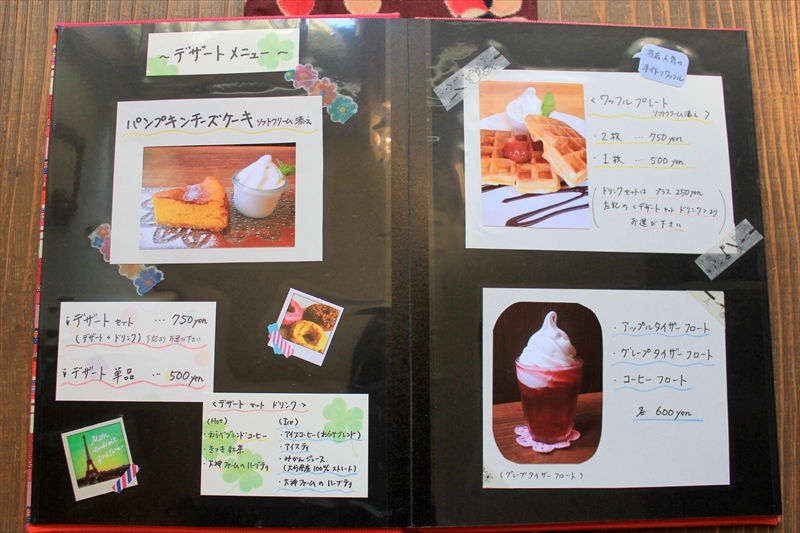 ～デザートメニュー～
パンプキンチーズケーキ ソフトクリーム添え
デザート セット … 750yen
(デザート+ドリンク) 下記よりお選び下さい
デザート 単品 … 500yen
<デザート セット ドリンク>
(Hot)
・わらべブレンドコーヒー
・きつき紅茶
・大神ファームのハーブティ
(Ice)
・アイスコーヒー(わらべブレンド)
・アイスティ
・みかんジュース
(大分県産100%ストレート)
・大神ファームのハーブティ
Mon
当店人気の
手作りワッフル
<ワッフルプレート
ソフトクリーム添え>
・2枚 … 750yen
・1枚 … 500yen
(ドリンクセットは プラス250yen
左記の<デザートセットドリンク>より
お選び下さい)
・アップルタイザーフロート
・グレープタイザーフロート
・コーヒーフロート
各 600yen
(グレープタイザーフロート)